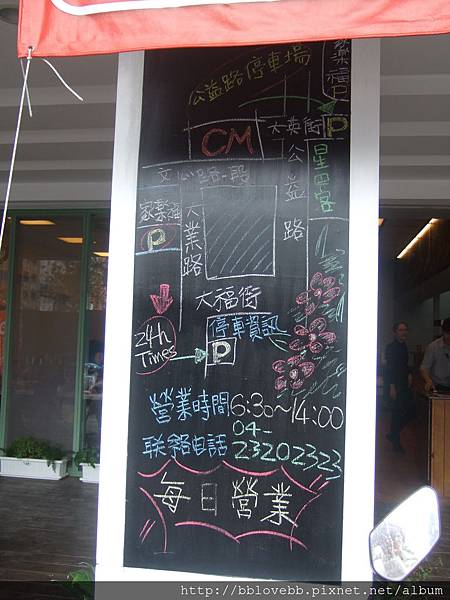 公益路停車場
家樂福P
CM
大英街
P
文心路一段
公益路
星巴客
家樂福
P
大業路
大福街
24h
Times
停車資訊
P
營業時間6:30~14:00
联絡电話04-
23202323
每日營業
http://bblovebb.pixnet.net/album